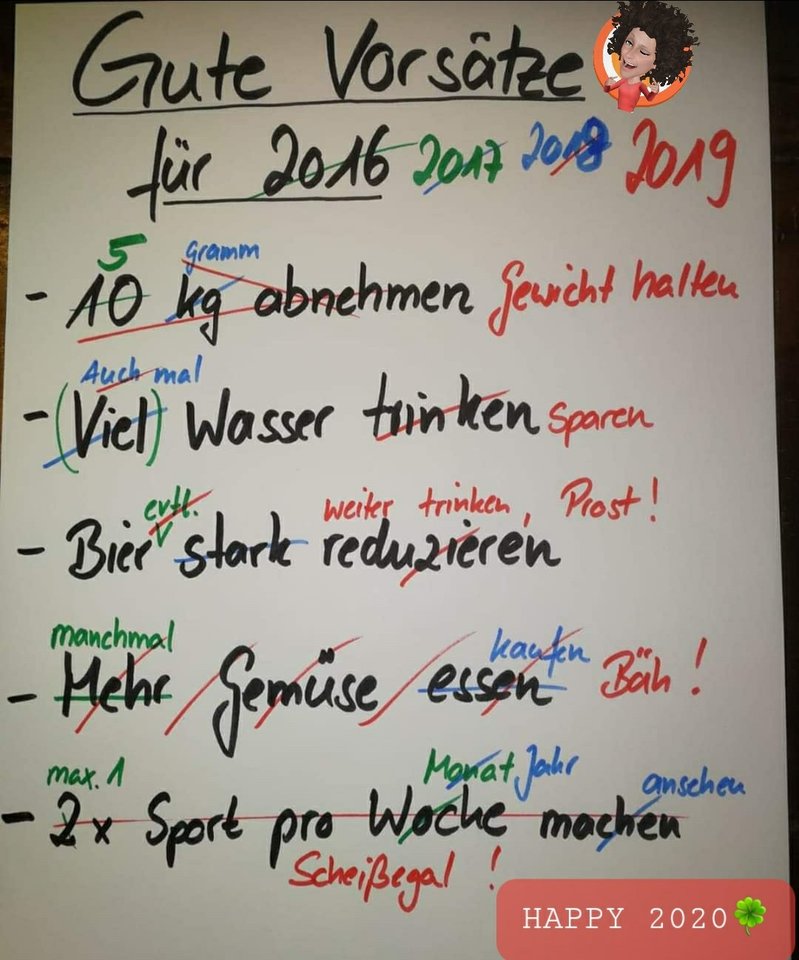 Gute Vorsätze
für 2016 2017 2018 2019
5 gramm
- 10 kg abnehmen Gewicht halten
Auch mal
- (Viel) Wasser trinken sparen
evtl. weiter trinken, Prost!
- Bier stark reduzieren
manchmal kaufen
- Mehr Gemüse essen Bäh!
max. 1 Monat Jahr anschen
- 2x Sport pro Woche machen
Scheißegal!
HAPPY 2020🍀